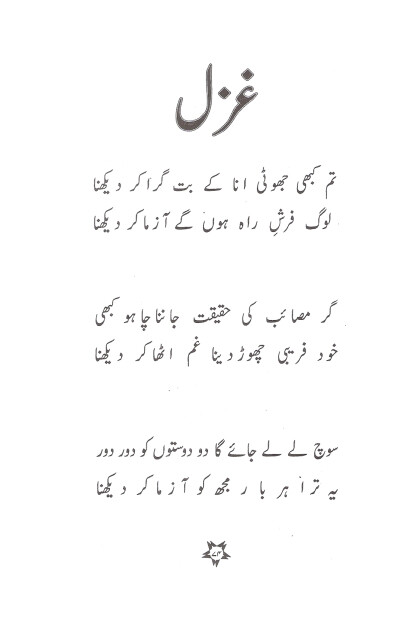 غزل
تم کبھی جھوٹی انا کے بت گرا کر دیکھنا
لوگ فرشِ راہ ہوں گے آزما کر دیکھنا
گر مصائب کی حقیقت جاننا چاہو کبھی
خود فریبی چھوڑ دینا غم اٹھا کر دیکھنا
سوچ لے لے جائے گا دو دوستوں کو دور دور
یہ ترا ہر بار مجھ کو آزما کر دیکھنا
۷۴